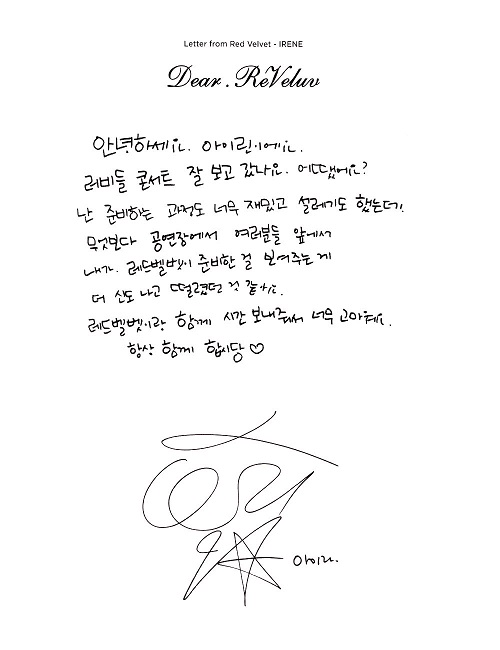 Letter from Red Velvet - IRENE
Dear. ReVeluv
안녕하세요. 아이린이에요.
러비들 콘서트 잘 보고 갔나요. 어땠어요?
난 준비하는 과정도 너무 재밌고 설레기도 했는데!
무엇보다 공연장에서 여러분들 앞에서
내가. 레드벨벳이 준비한 걸 보여주는게
더 신도 나고 떨렸던 것 같아요.
레드벨벳이랑 함께 시간 보내줘서 너무 고마워요.
항상 함께 합시당 ♡
아이린.